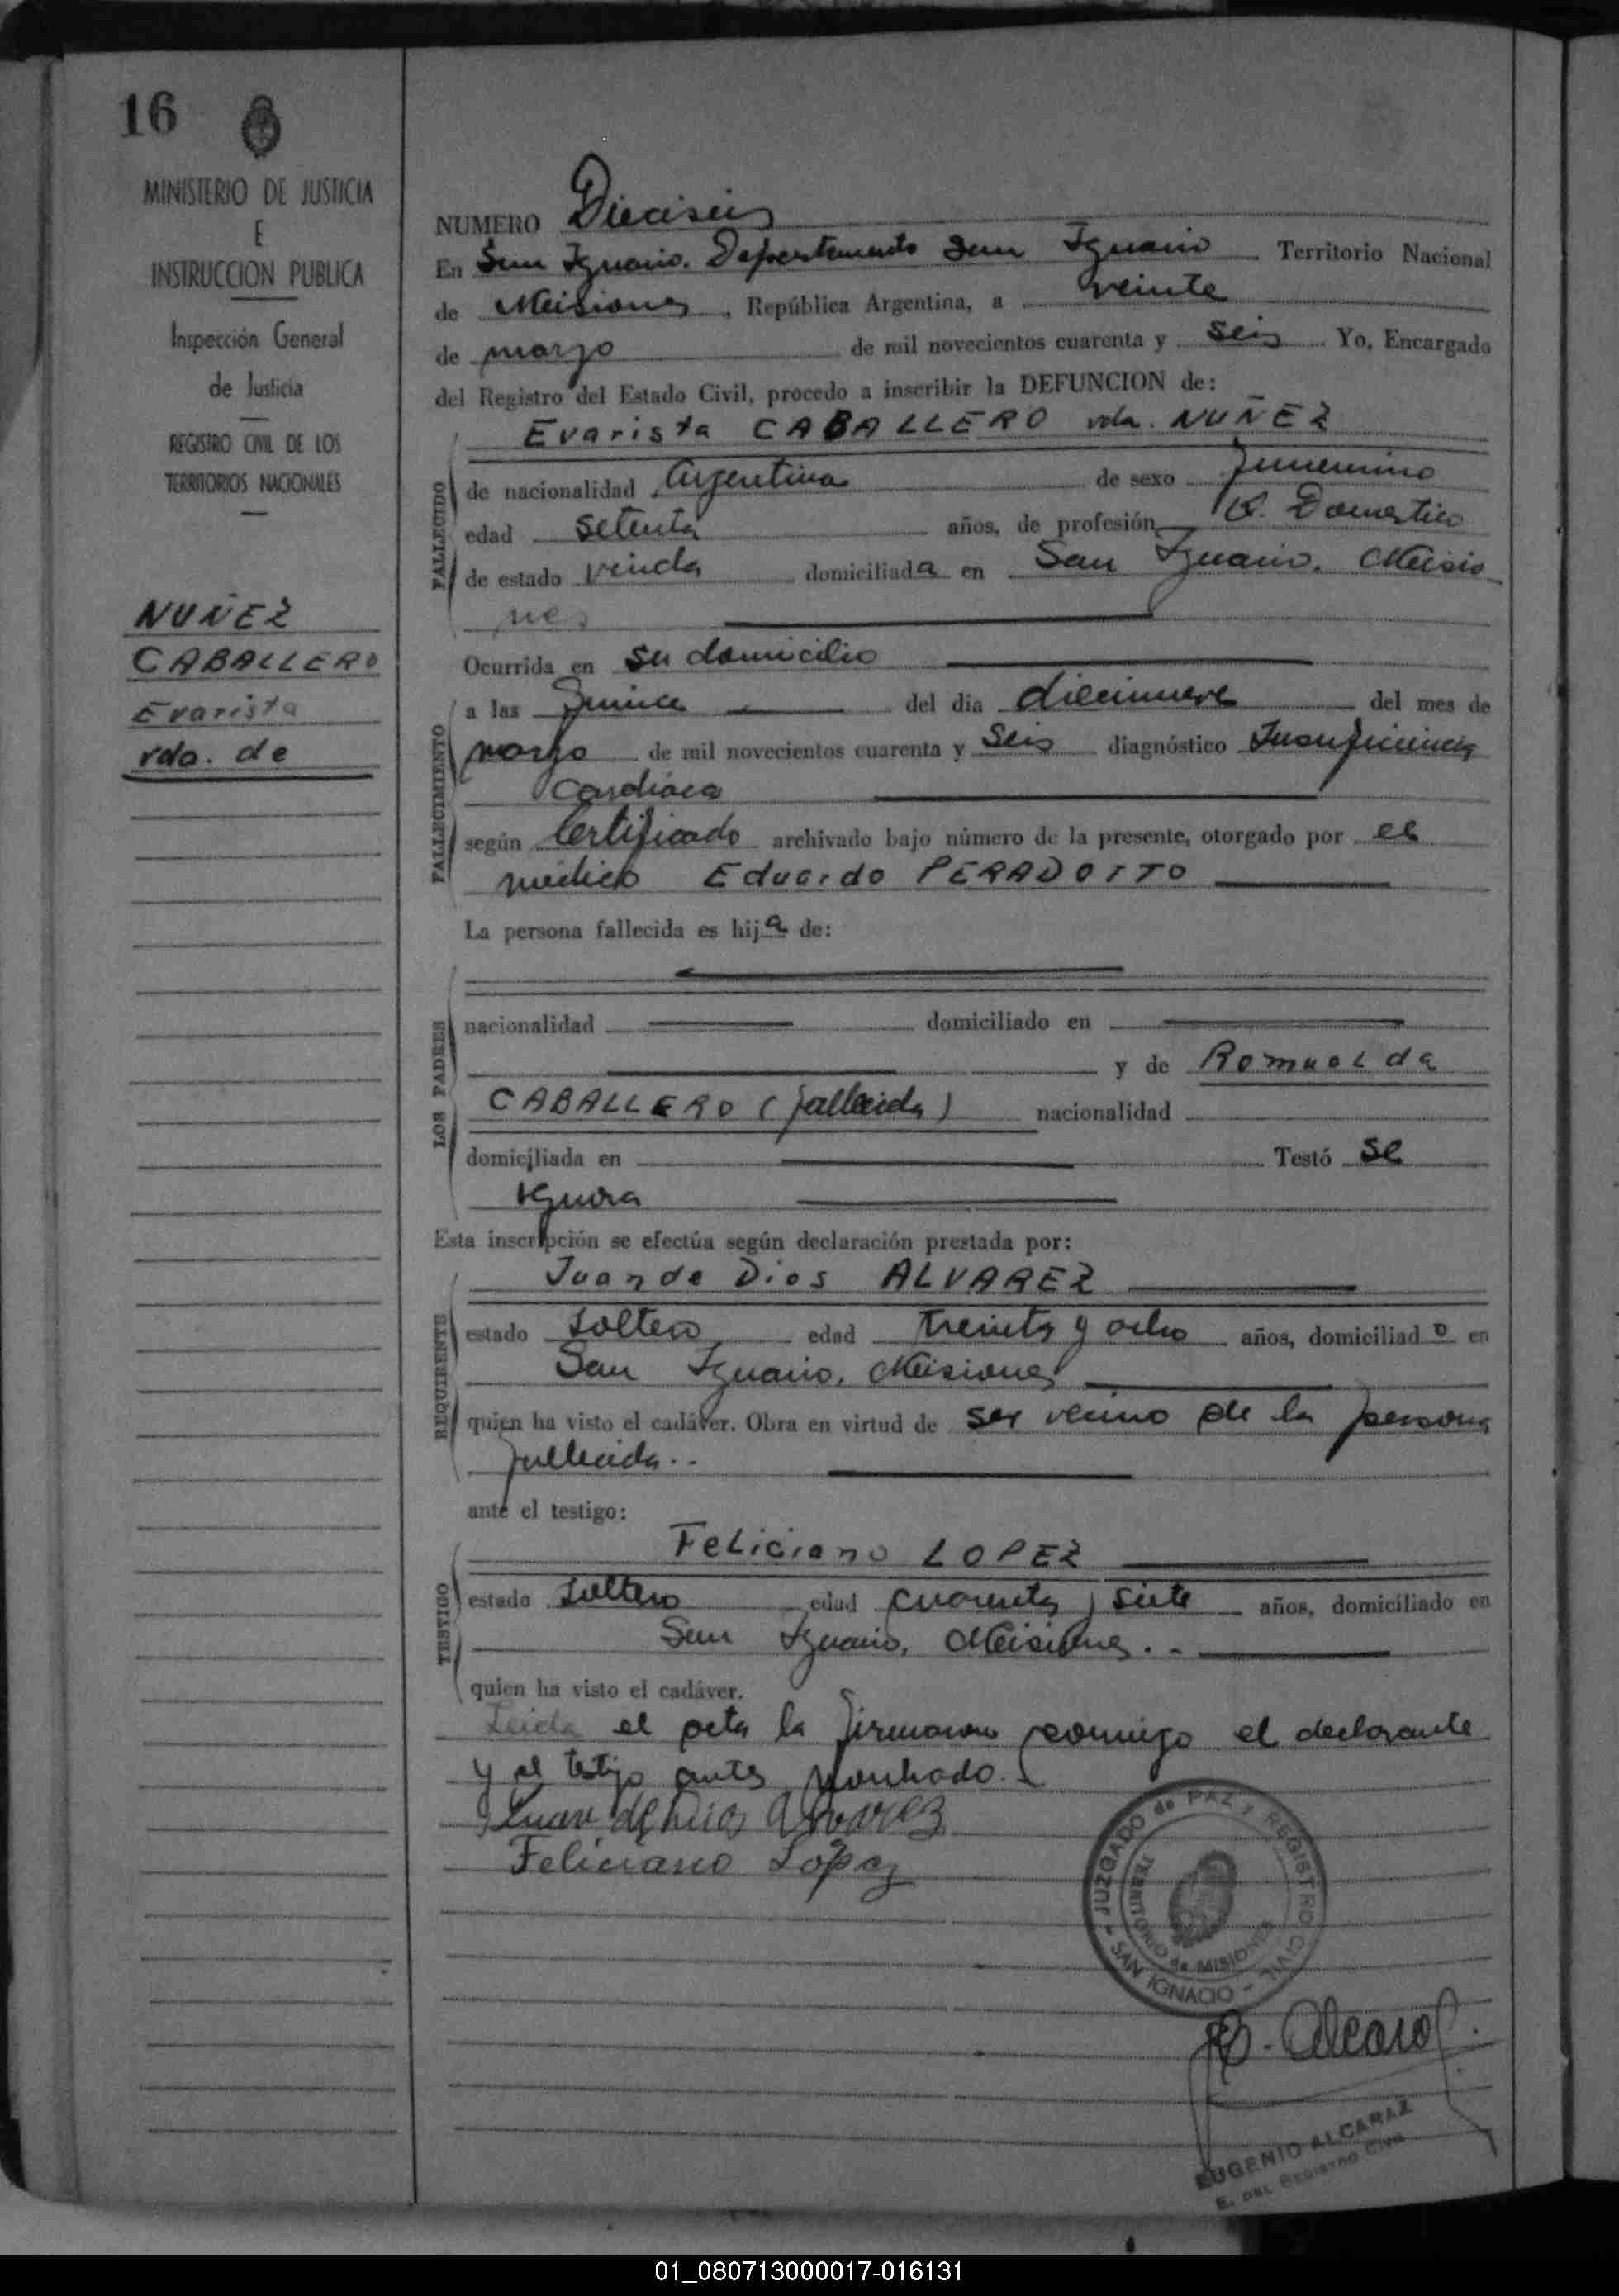 16
MINISTERIO DE JUSTICIA
E
INSTRUCCION PUBLICA
Inspección General
de Justicia
REGISTRO CIVIL DE LOS
TERRITORIOS NACIONALES
NUÑEZ
CABALLERO
Evarista
vda. de
NUMERO Dieciseis
En San Ignacio. Departamento San Ignacio Territorio Nacional
de Misiones, República Argentina, a veinte
de marzo de mil novecientos cuarenta y seis. Yo, Encargado
del Registro del Estado Civil, procedo a inscribir la DEFUNCION de:
Evarista CABALLERO vda. NUÑEZ
FALLECIDO
de nacionalidad Argentina de sexo femenino
edad setenta años, de profesión Q. Domestico
de estado viuda domiciliada en San Ignacio, Misio
nes
Ocurrida en su domicilio
FALLECIMIENTO
a las quince del día diecinueve del mes de
marzo de mil novecientos cuarenta y seis diagnóstico Insuficiencia
Cardiaca
según Certificado archivado bajo número de la presente, otorgado por el
médico Eduardo PERADOTTO
La persona fallecida es hija de:
LOS PADRES
nacionalidad domiciliado en
y de Romualda
CABALLERO (fallecida) nacionalidad
domiciliada en Testó se
ignora
Esta inscripción se efectúa según declaración prestada por:
Juan de Dios ALVAREZ
REQUIRENTE
estado soltero edad treinta y ocho años, domiciliado en
San Ignacio, Misiones
quien ha visto el cadáver. Obra en virtud de ser vecino de la persona
fallecida..
ante el testigo:
Feliciano LOPEZ
TESTIGO
estado soltero edad cuarenta y siete años, domiciliado en
San Ignacio, Misiones..
quien ha visto el cadáver.
Leida el acta la firmaron conmigo el declarante
y el testigo antes nombrado.
Juan de Dios Alvarez
Feliciano Lopez
JUZGADO de PAZ y REGISTRO CIVIL - SAN IGNACIO -
TERRITORIO de MISIONES
E. Alcaraz
EUGENIO ALCARAZ
E. DEL REGISTRO CIVIL
01_080713000017-016131